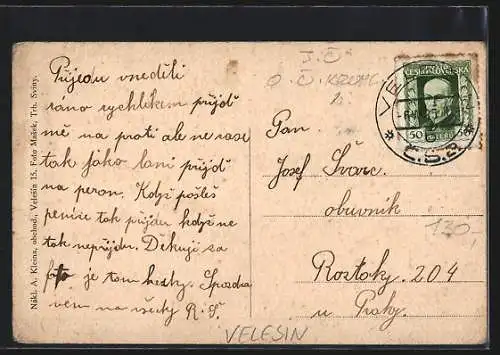 Přijedu v neděli
ráno rychlíkem přijdť
mě na proti ale ne zase
tak jáko lani přijdť
na peron. Když pošleš
peníze tak přijdu když ne
tak nepřijdu. Děkuji za
foto je tom hezky. Pozdra
vem na všecky R. Š.
Nákl. A. Kleina, obchod., Velešín 15. Foto Mašek, Trh. Sviny.
J.Č.
O. Č. KRUML
ČESKOSLOVENSKÁ
50 50
Č.S.R
Pan
Josef Švarc
obuvník
130,-
Roztoky 204
u Prahy
VELESIN